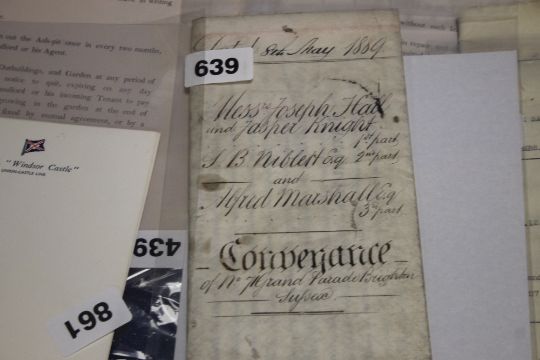 in writing
out the Ash-pit once in every two months,
dlord or his Agent.
Outbuildings, and Garden at any period of
notice to quit, expiring on any day
andlord or his incoming Tenant to pay
growing in the garden at the end of
fixed by mutual agreement, or by a
"Windsor Castle"
UNION-CASTLE LINE
861
439
639
Dated 8th May 1869
Messrs Joseph Hall
and Jasper Knight
1st part
S. B. Niblett Esq 2nd part
and
Alfred Marshall Esq
3rd part
Conveyance
of No 7 Grand Parade Brighton
Sussex